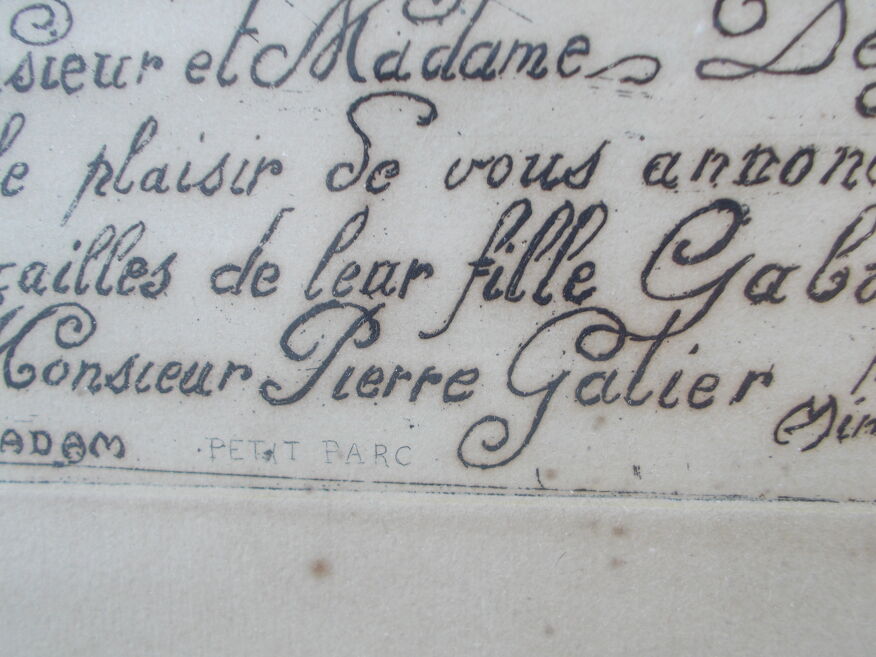 sieur et Madame De
le plaisir de vous annonc
çailles de leur fille Gab
Monsieur Pierre Galier
ADAM PETIT PARC